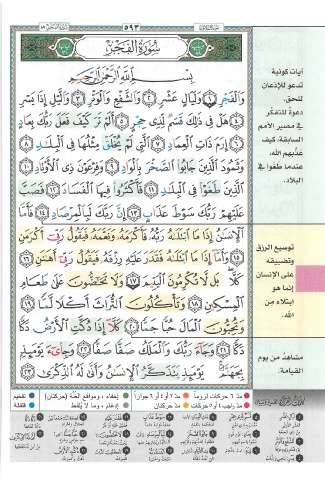 سُورَةُ الْفَجْرِ
٥٩٣
سُورَةُ الْفَجْرِ
بِسْمِ اللَّهِ الرَّحْمَٰنِ الرَّحِيمِ
وَالْفَجْرِ ۝١ وَلَيَالٍ عَشْرٍ ۝٢ وَالشَّفْعِ وَالْوَتْرِ ۝٣ وَاللَّيْلِ إِذَا يَسْرِ
۝٤ هَلْ فِي ذَٰلِكَ قَسَمٌ لِّذِي حِجْرٍ ۝٥ أَلَمْ تَرَ كَيْفَ فَعَلَ رَبُّكَ بِعَادٍ
۝٦ إِرَمَ ذَاتِ الْعِمَادِ ۝٧ الَّتِي لَمْ يُخْلَقْ مِثْلُهَا فِي الْبِلَادِ ۝٨
وَثَمُودَ الَّذِينَ جَابُوا الصَّخْرَ بِالْوَادِ ۝٩ وَفِرْعَوْنَ ذِي الْأَوْتَادِ ۝١٠
الَّذِينَ طَغَوْا فِي الْبِلَادِ ۝١١ فَأَكْثَرُوا فِيهَا الْفَسَادَ ۝١٢ فَصَبَّ
عَلَيْهِمْ رَبُّكَ سَوْطَ عَذَابٍ ۝١٣ إِنَّ رَبَّكَ لَبِالْمِرْصَادِ ۝١٤ فَأَمَّا
الْإِنسَانُ إِذَا مَا ابْتَلَاهُ رَبُّهُ فَأَكْرَمَهُ وَنَعَّمَهُ فَيَقُولُ رَبِّي أَكْرَمَنِ
۝١٥ وَأَمَّا إِذَا مَا ابْتَلَاهُ فَقَدَرَ عَلَيْهِ رِزْقَهُ فَيَقُولُ رَبِّي أَهَانَنِ ۝١٦
كَلَّا بَل لَّا تُكْرِمُونَ الْيَتِيمَ ۝١٧ وَلَا تَحَاضُّونَ عَلَىٰ طَعَامِ
الْمِسْكِينِ ۝١٨ وَتَأْكُلُونَ التُّرَاثَ أَكْلًا لَّمًّا ۝١٩
وَتُحِبُّونَ الْمَالَ حُبًّا جَمًّا ۝٢٠ كَلَّا إِذَا دُكَّتِ الْأَرْضُ دَكًّا
دَكًّا ۝٢١ وَجَاءَ رَبُّكَ وَالْمَلَكُ صَفًّا صَفًّا ۝٢٢ وَجِيءَ يَوْمَئِذٍ
بِجَهَنَّمَ يَوْمَئِذٍ يَتَذَكَّرُ الْإِنسَانُ وَأَنَّىٰ لَهُ الذِّكْرَىٰ ۝٢٣
آيات كونية
تدعو للإذعان
للحق.
دعوة للتفكر
في مصير الأمم
السابقة كيف
عذبهم الله،
عندما طغوا في
البلاد.
توسيع الرزق
وتضييقه
على الإنسان
إنما هو
ابتلاء من
الله.
مشاهد من يوم
القيامة.
مدّ ٦ حركات لزوماً
مدّ ٢ أو ٤ أو ٦ جوازاً
إخفاء، ومواقع الغُنَّة (حركتان)
تفخيم
مدّ واجب ٤ أو ٥ حركات
مدّ حركتان
إدغام، وما لا يُلفَظ
قلقلة